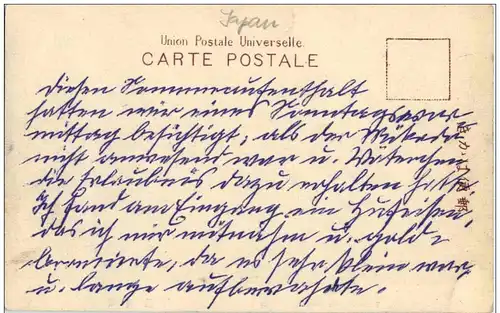 Japan
Union Postale Universelle.
CARTE POSTALE
Diesen Sommeraufenthalt
hatten wir eines Sonntagsvor
mittag besichtigt, als der Mikado
nicht anwesend war u. Vaterchen
die Erlaubnis dazu erhalten hatte.
Ich fand am Eingang ein Hufeisen,
das ich mir mitnahm u. gold-
bronzierte, da es sehr klein war,
u. lange aufbewahrte.